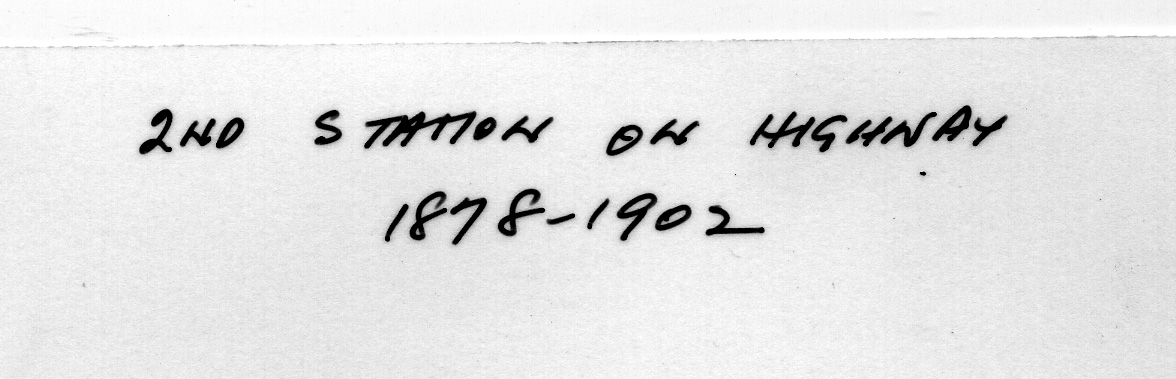 2ND STATION ON HIGHWAY
1878-1902